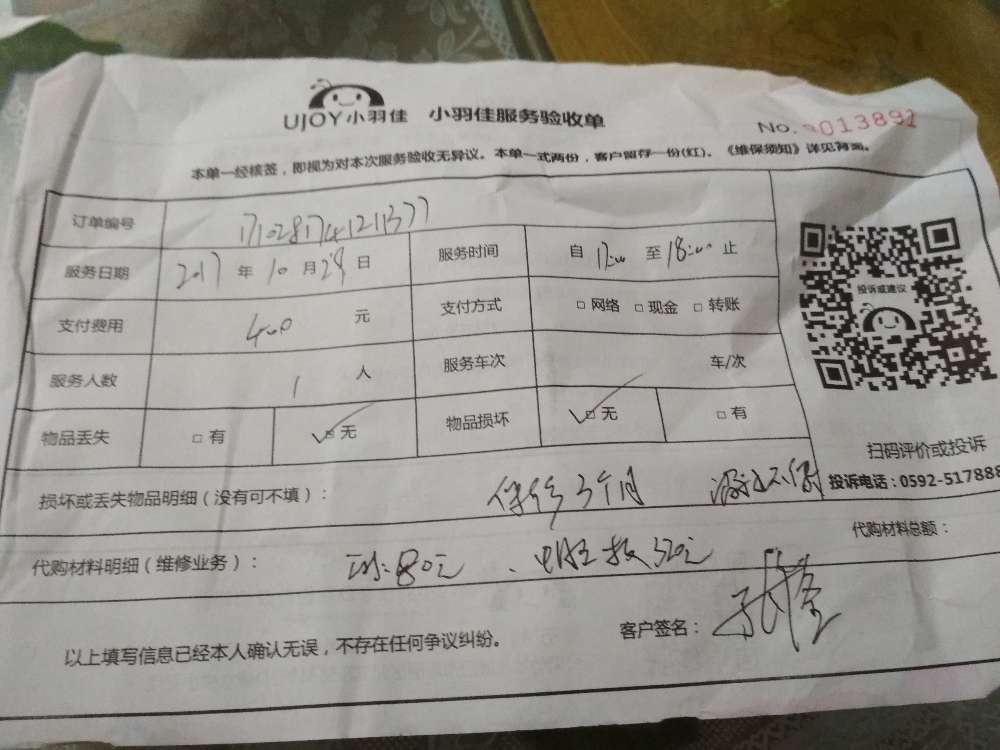 UJOY小羽佳 小羽佳服务验收单
No. 013892
本单一经核签，即视为对本次服务验收无异议。本单一式两份，客户留存一份(红)。《维保须知》详见背面。
订单编号
服务日期 2017 年 10 月 28 日 服务时间 自 至 18:00 止
支付费用 400 元 支付方式 □ 网络 □ 现金 □ 转账
服务人数 1 人 服务车次 车/次
物品丢失 □ 有 □ 无 物品损坏 □ 无 □ 有
投诉或建议
扫码评价或投诉
投诉电话：0592-517888
损坏或丢失物品明细（没有可不填）： 保修3个月 不保
代购材料明细（维修业务）： 80元、电脑板320元 代购材料总额：
以上填写信息已经本人确认无误，不存在任何争议纠纷。 客户签名：